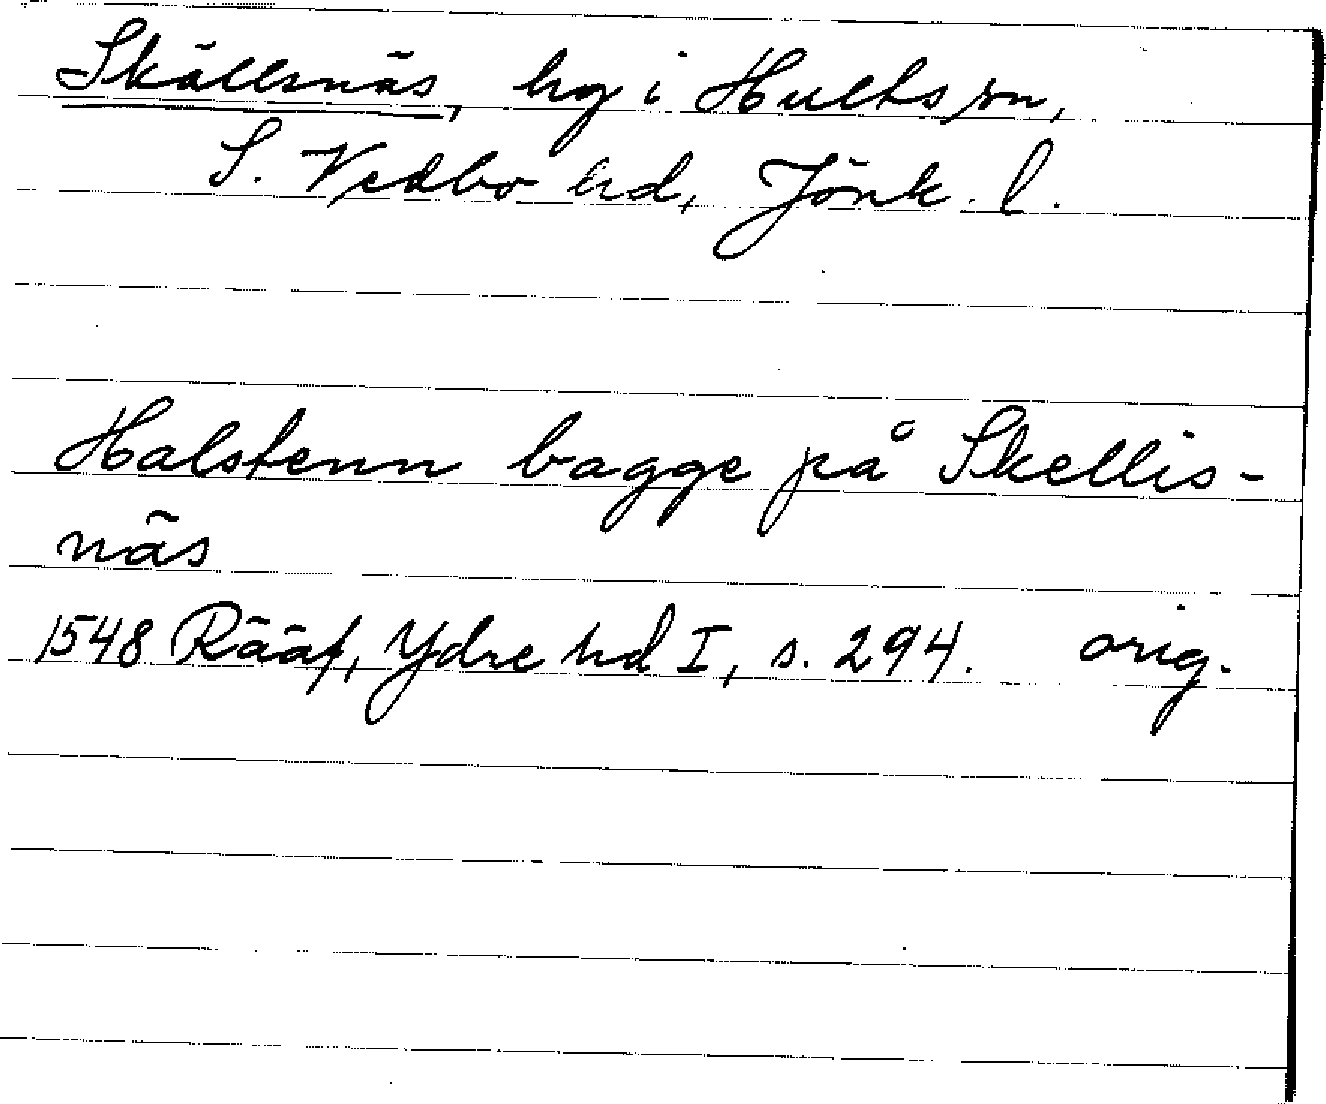 Skällsnäs, hg i Hults sn,
S. Vedbo hd, Jönk. l.
Halstenn bagge på Skellis-
näs
1548 Rääf, Ydre hd I, s. 294. orig.